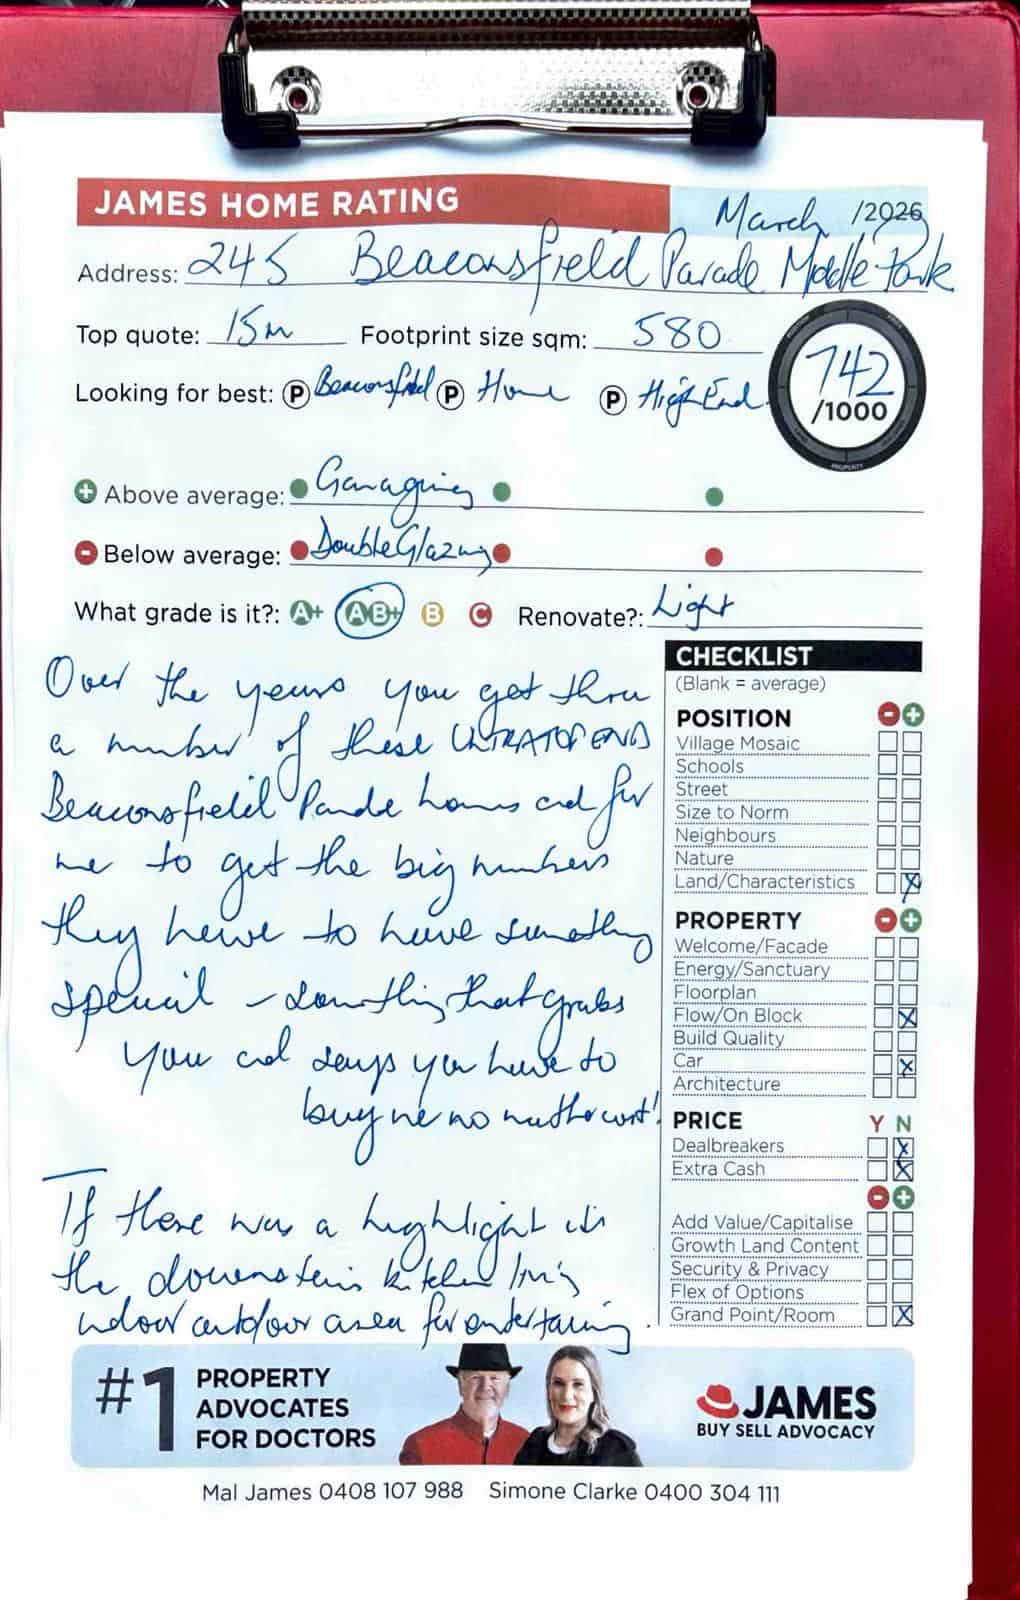 JAMES HOME RATING
March /2026
Address: 245 Beaconsfield Parade Middle Park
Top quote: 15m Footprint size sqm: 580
742
/1000
Looking for best: P Beaconsfield P Home P High End
Above average: Garaging
Below average: Double Glazing
What grade is it?: A+ AB+ B C Renovate?: Light
Over the years you get thru
a number of these ULTRA TOP END
Beaconsfield Parade homes and for
me to get the big numbers
they have to have something
special - something that grabs
you and says you have to
buy me no matter cost!
If there was a highlight its
the downstairs kitchen living
indoor outdoor area for entertaining.
CHECKLIST
(Blank = average)
POSITION
Village Mosaic
Schools
Street
Size to Norm
Neighbours
Nature
Land/Characteristics X
PROPERTY
Welcome/Facade
Energy/Sanctuary
Floorplan
Flow/On Block X
Build Quality
Car X
Architecture
PRICE Y N
Dealbreakers X
Extra Cash X
Add Value/Capitalise
Growth Land Content
Security & Privacy
Flex of Options
Grand Point/Room X
#1 PROPERTY
ADVOCATES
FOR DOCTORS
JAMES
BUY SELL ADVOCACY
Mal James 0408 107 988 Simone Clarke 0400 304 111